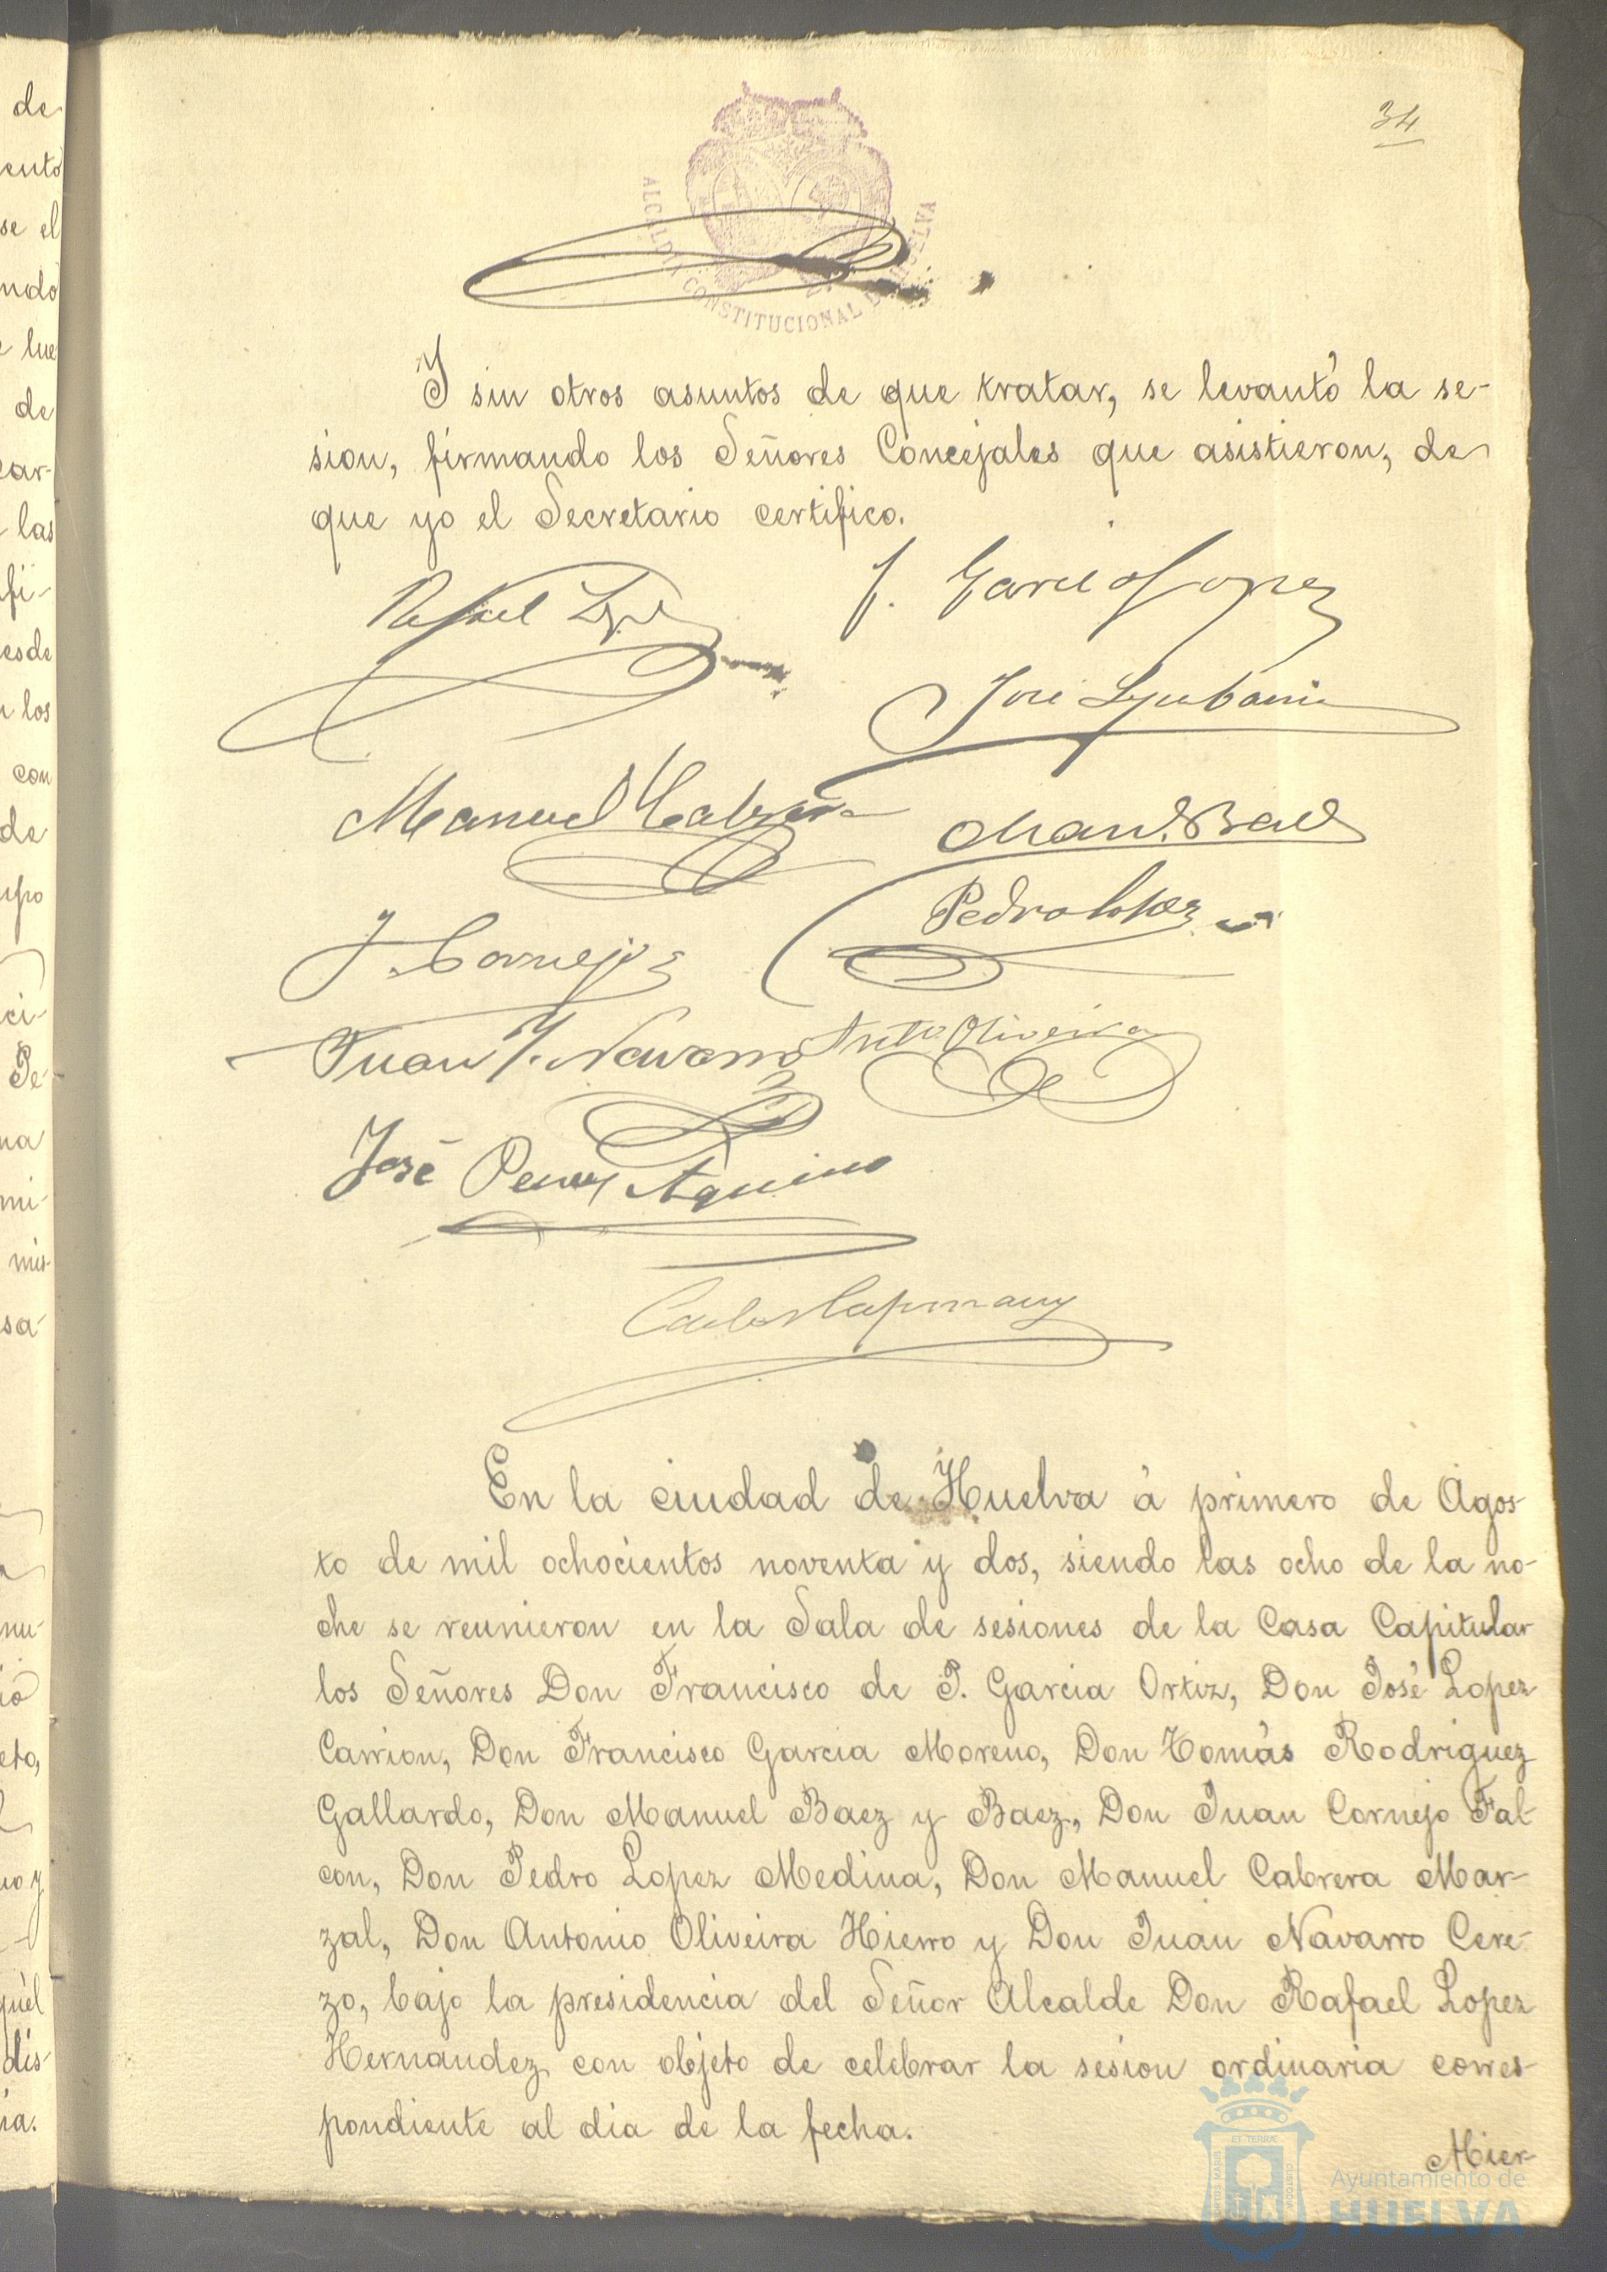 34
ALCALDIA CONSTITUCIONAL DE HUELVA
Y sin otros asuntos de que tratar, se levantó la se-
sion, firmando los Señores Concejales que asistieron, de
que yo el Secretario certifico.
Rafael Lopez
J. Garcia Lopez
José
Manuel Cabrera
Man. Baez
Pedro Lopez
J. Cornejo
Juan J. Navarro
Ant.o Oliveira
José Perez Aquino
Carlos Capmany
En la ciudad de Huelva á primero de Agos-
to de mil ochocientos noventa y dos, siendo las ocho de la no-
che se reunieron en la Sala de sesiones de la Casa Capitular
los Señores Don Francisco de P. Garcia Ortiz, Don José Lopez
Carrion, Don Francisco Garcia Moreno, Don Tomás Rodriguez
Gallardo, Don Manuel Baez y Baez, Don Juan Cornejo Fal-
con, Don Pedro Lopez Medina, Don Manuel Cabrera Mar-
zal, Don Antonio Oliveira Hierro y Don Juan Navarro Cere-
zo, bajo la presidencia del Señor Alcalde Don Rafael Lopez
Hernandez con objeto de celebrar la sesion ordinaria corres-
pondiente al dia de la fecha.
Mier-
Ayuntamiento de
HUELVA